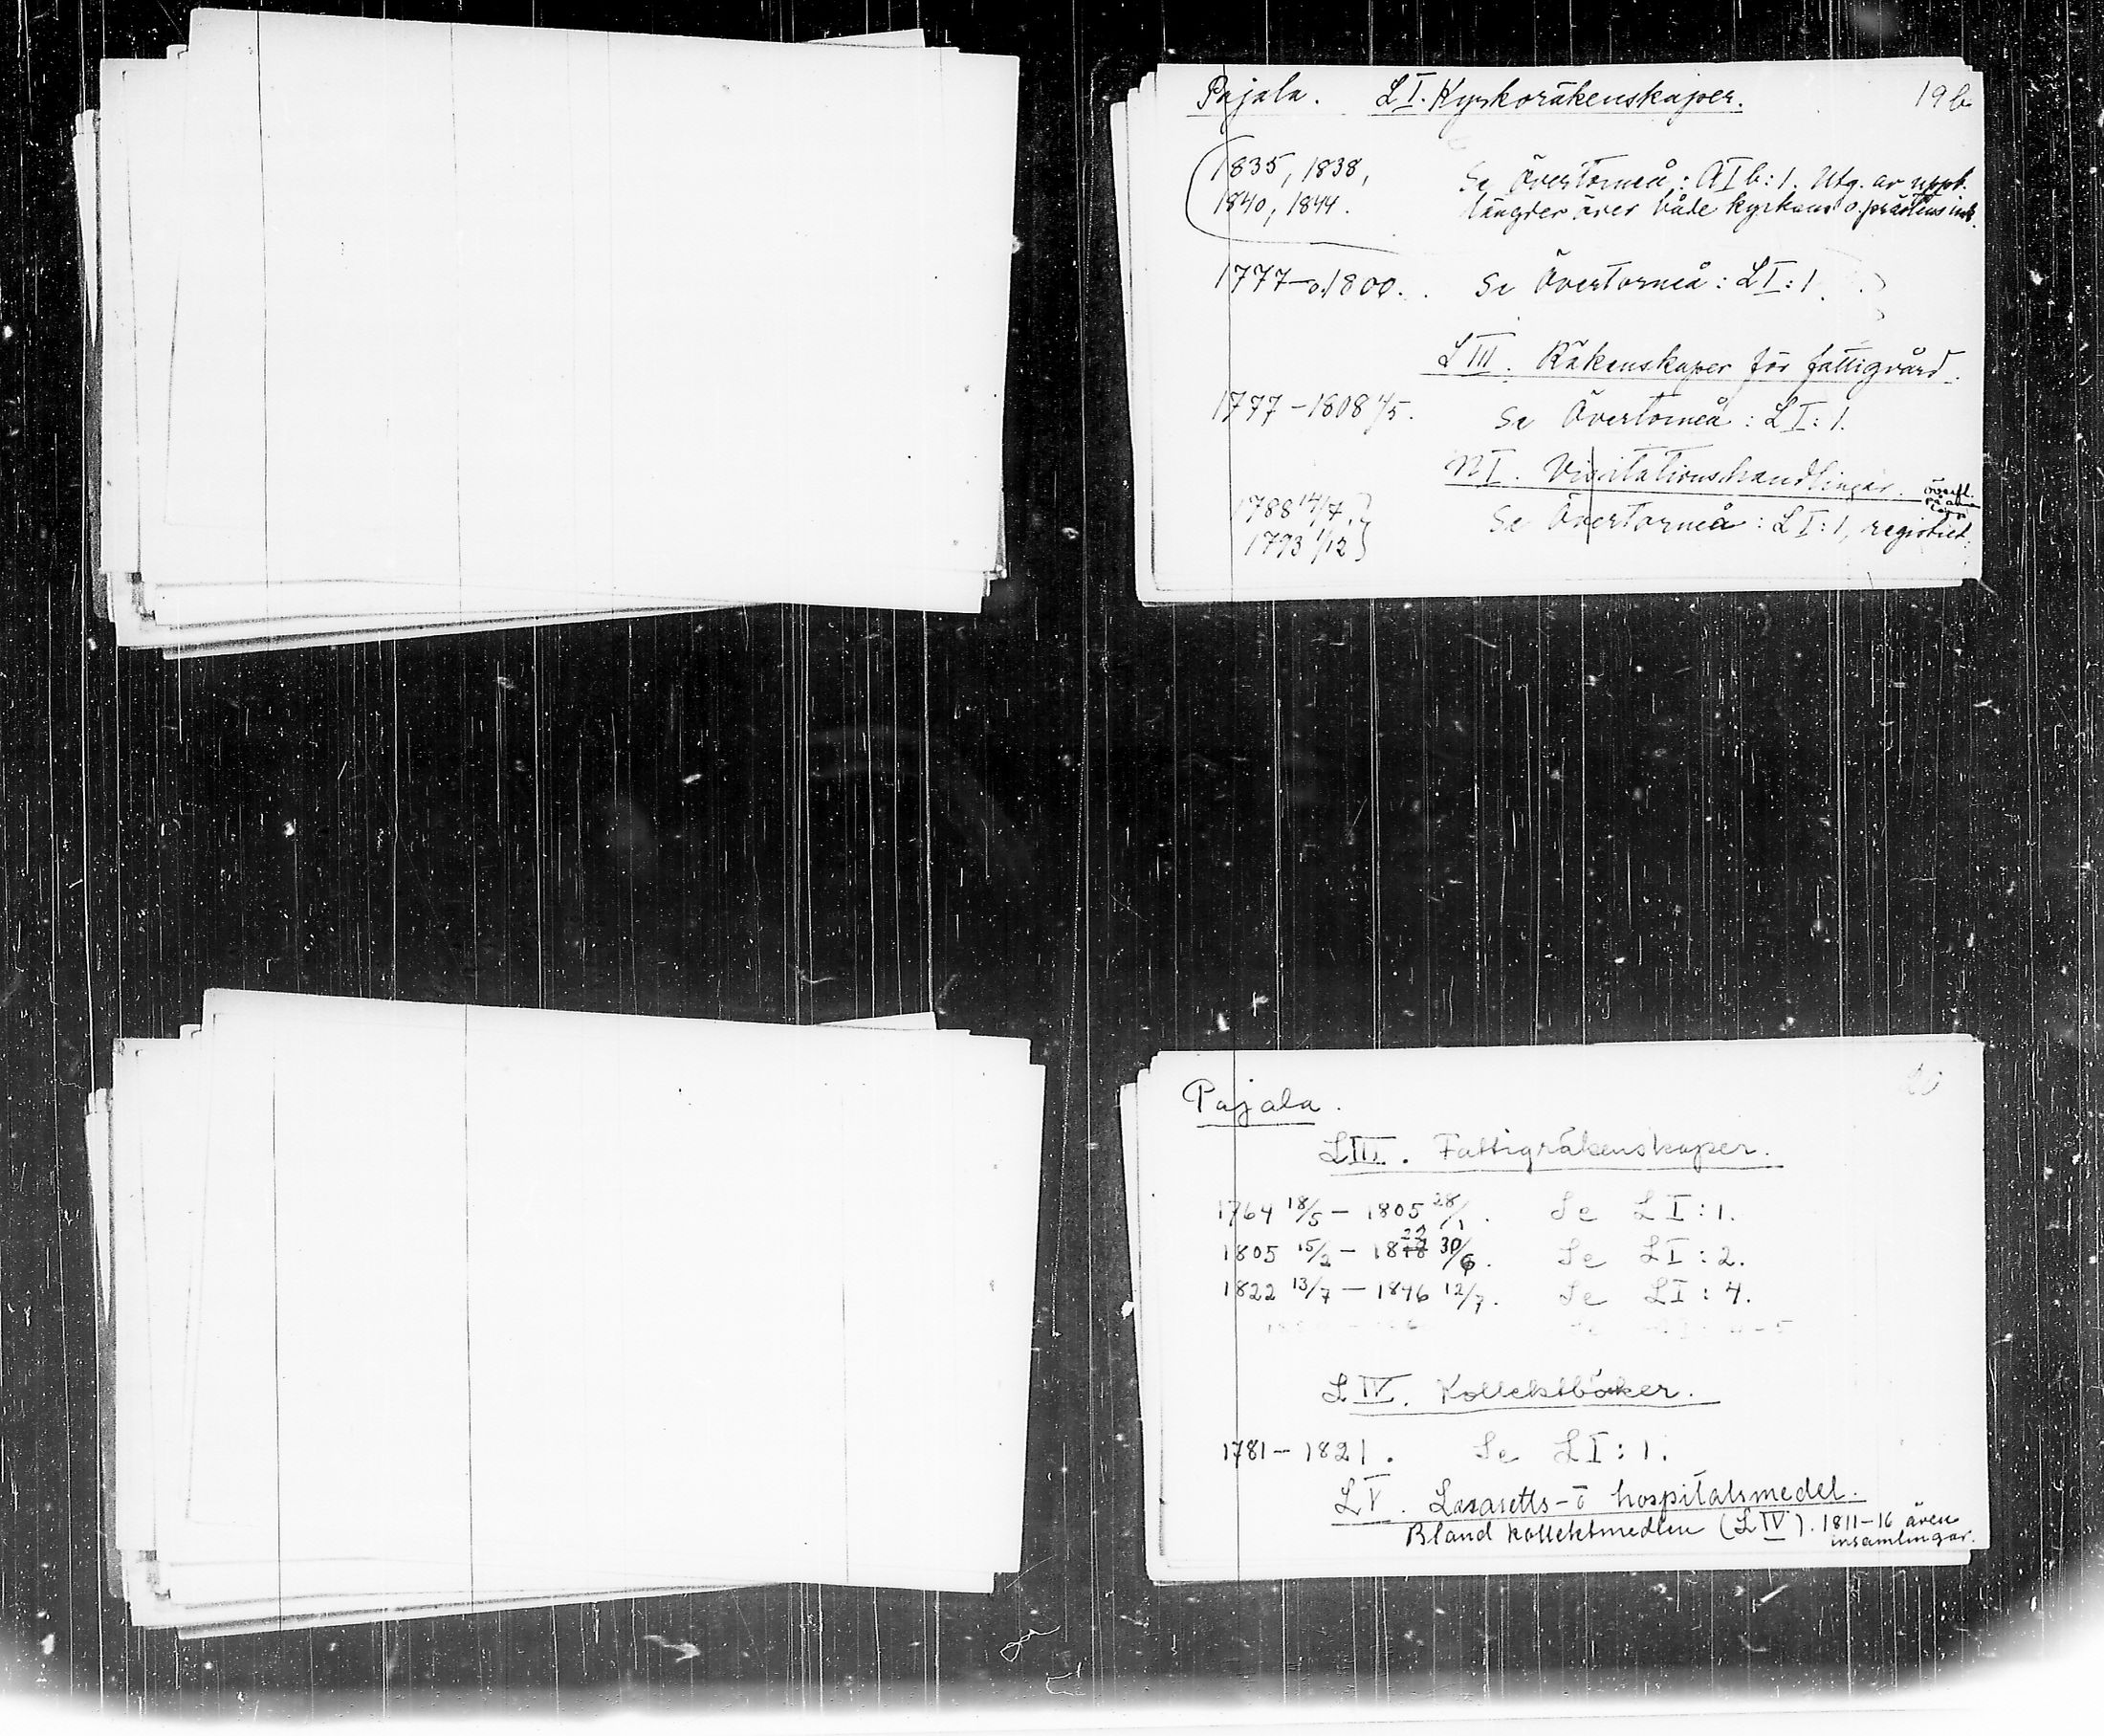 Pajala. L I. Kyrkoräkenskaper. 19 b
1835, 1838, Se Övertorneå: A I b: 1. Utg. av uppb.
1840, 1844. längder över både kyrkans o. prästens ink.
1777–o. 1800. Se Övertorneå: L I: 1.
L III. Räkenskaper för fattigvård.
1777–1808 4/5. Se Övertorneå: L I: 1.
N I. Visitationshandlingar.
1788 14/7, Se Övertorneå: L I: 1, registret.
1793 1/12
Pajala. 20
L III. Fattigräkenskaper.
1764 18/5 – 1805 28/1. Se L I: 1.
22
1805 15/2 – 1818 30/6. Se L I: 2.
1822 13/7 – 1846 12/7. Se L I: 4.
L IV. Kollektböcker.
1781–1821. Se L I: 1.
L V. Lasaretts- o hospitalsmedel.
Bland kollektmedlen (L IV). 1811–16 även
insamlingar.